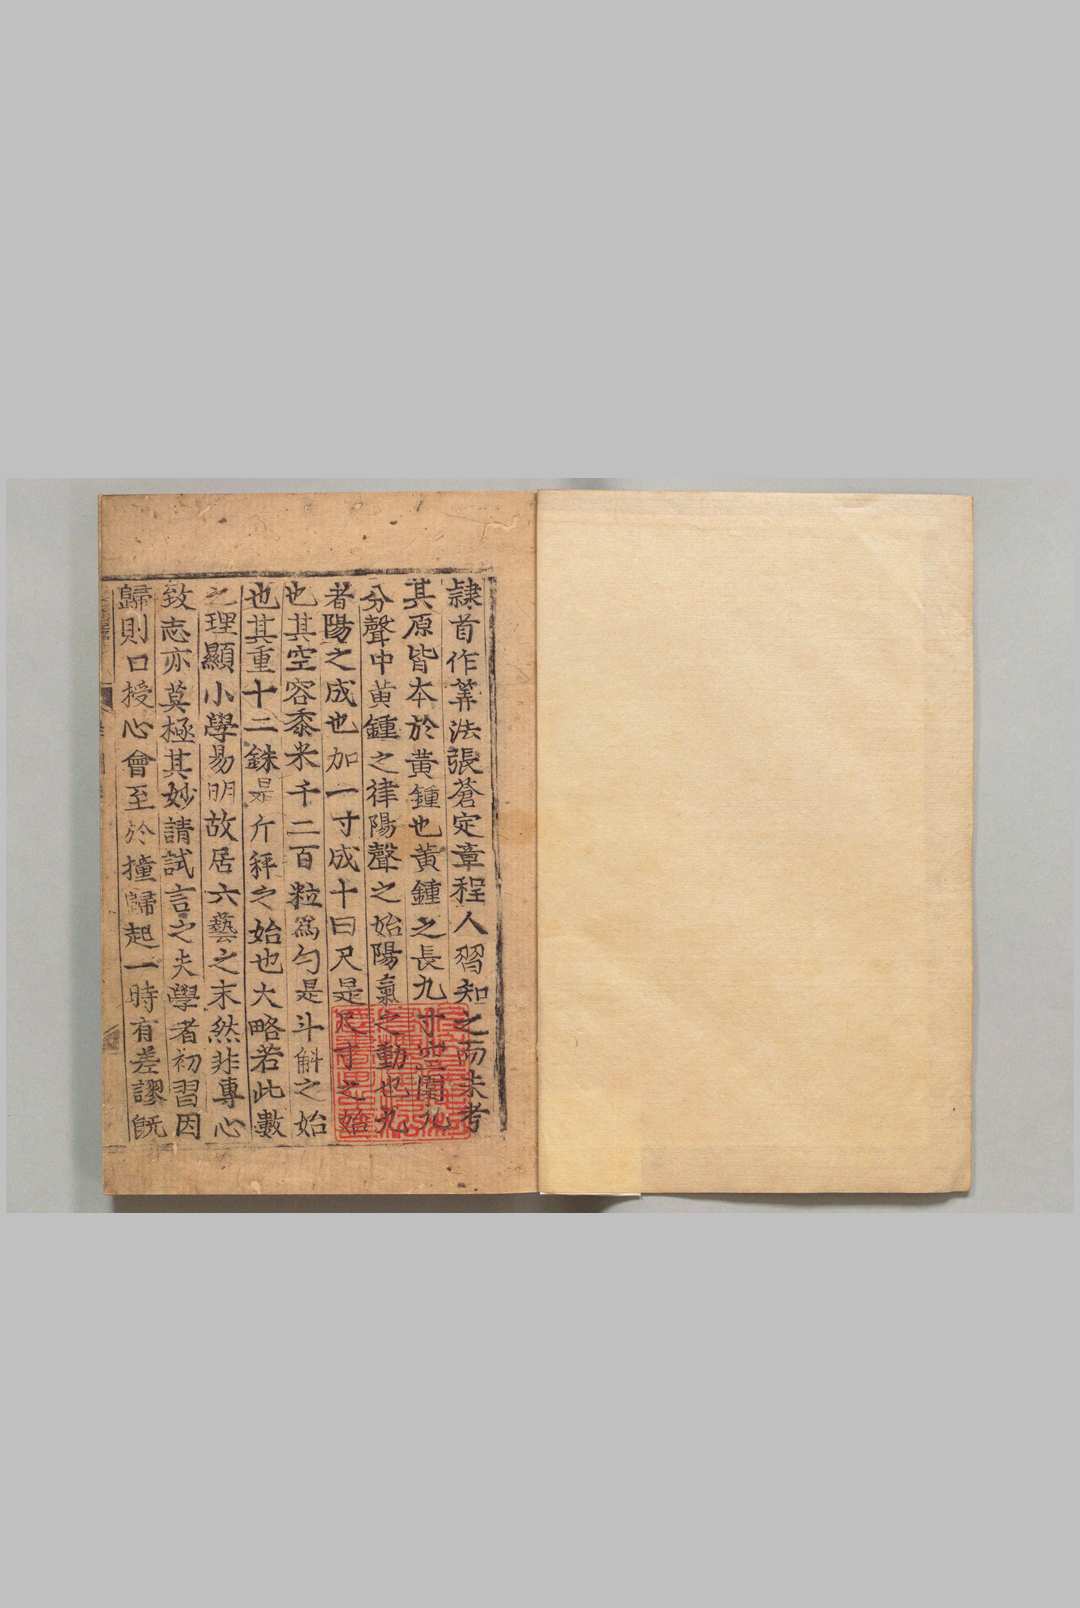 隷首作筭法張蒼定章程人習知之而未考
其原皆本於黃鍾也黃鍾之長九寸空圍九
分聲中黃鍾之律陽聲之始陽氣之動也九
者陽之成也加一寸成十曰尺是尺寸之始
也其空容黍米千二百粒爲勺是斗斛之始
也其重十二銖是斤秤之始也大略若此數
之理顯小學易明故居六藝之末然非專心
致志亦莫極其妙請試言之夫學者初習因
歸則口授心會至於撞歸起一時有差謬旣